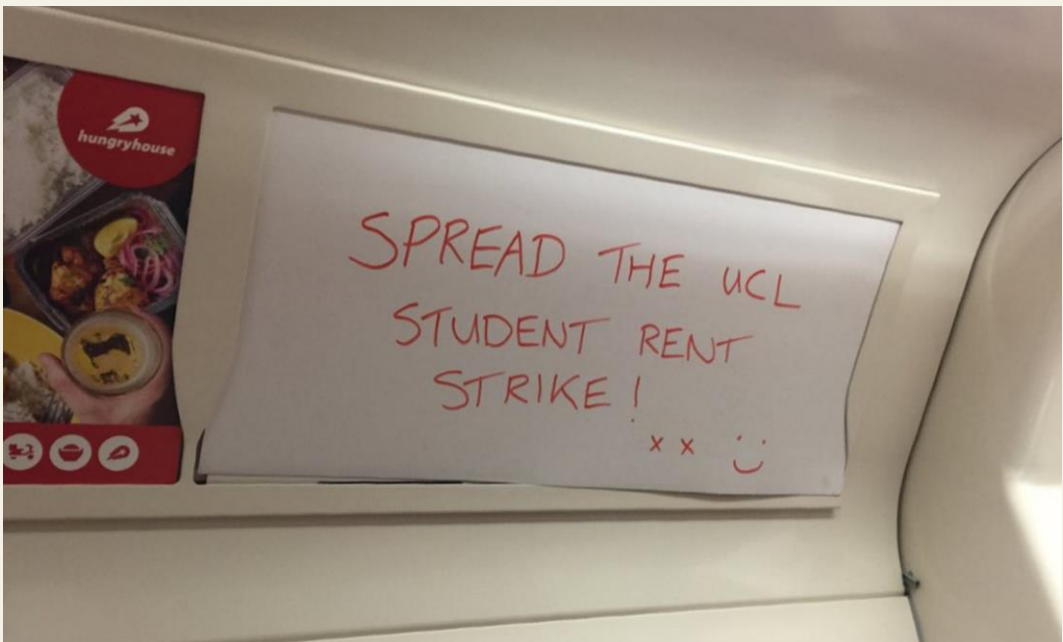 hungryhouse
SPREAD THE UCL
STUDENT RENT
STRIKE!
x x